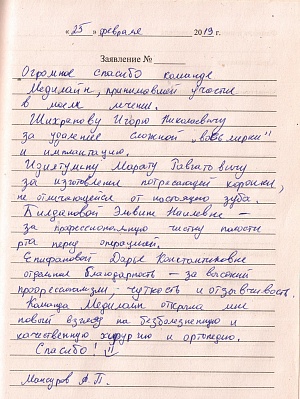 « 25 » февраля 2019 г.
Заявление №
Огромное спасибо команде
Медилайн, принимавшей участие
в моем лечении.
Шихранову Игорю Николаевичу
за удаление сложной „восьмерки"
и имплантацию.
Идиятулину Марату Равгатовичу
за изготовление потрясающей коронки,
не отличающейся от настоящего зуба.
Билдановой Эльвине Наилевне –
за профессиональную чистку полости
рта перед операцией.
Епифановой Дарье Константиновне
отдельная благодарность – за высокий
профессионализм, чуткость и отзывчивость.
Команда Медилайн открыла мне
новый взгляд на безболезненную и
качественную хирургию и ортопедию.
Спасибо!!!
Мансуров А.П.